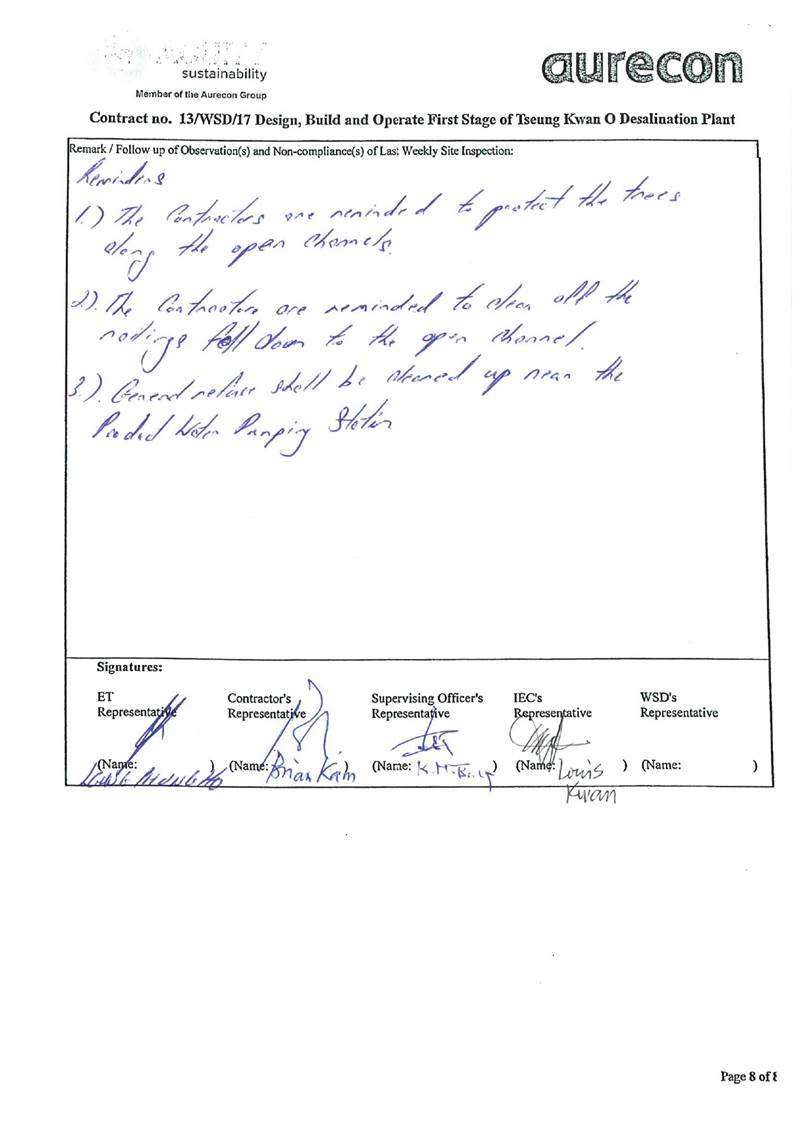 sustainability
Member of the Aurecon Group
aurecon
Contract no. 13/WSD/17 Design, Build and Operate First Stage of Tseung Kwan O Desalination Plant
Remark / Follow up of Observation(s) and Non-compliance(s) of Last Weekly Site Inspection:
Reminders
1.) The Contractors are reminded to protect the trees
along the open channels.
2). The Contractors are reminded to clean off the
fall down to the open channel.
3.). General refuse shall be cleaned up near the
Water Pumping Station
Signatures:
ET Representative
Contractor's Representative
Supervising Officer's Representative
IEC's Representative
WSD's Representative
(Name: )
(Name: Brian Kam )
(Name: K.M. )
(Name: Louis Kwan )
(Name: )
Page 8 of